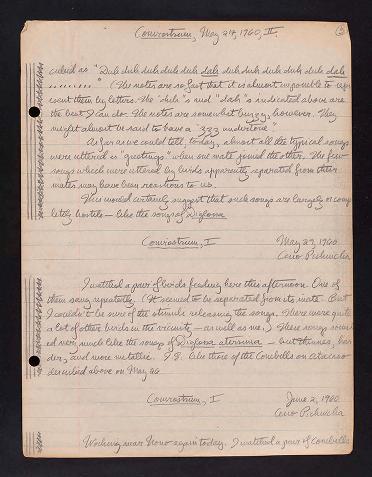 Conirostrum, May 24, 1960, II.
culud as "Duh duh duh duh duh dah duh duh duh duh duh dah
........" (The notes are so fast that it is almost impossible to repre-
sent them by letters. The "duh"s and "dah"s indicated above are
the best I can do. The notes are somewhat buzzy, however. They
might almost be said to have a "zzz undertone."
As far as we could tell, today, almost all the typical songs
were uttered as "greetings" when one mate joined the other. The few
songs which were uttered by birds apparently separated from their
mates may have been reactions to us.
This would certainly suggest that such songs are largely or comp-
letely hostile - like the songs of Diglossa
Conirostrum, I
May 27, 1960
Cerro Pichincha
I watched a pair of birds feeding here this afternoon. One of
them sang repeatedly. (It seemed to be separated from its mate. But
I couldn't be sure of the stimuli releasing the songs. There were quite
a lot of other birds in the vicinity - as well as me.) These songs sound-
ed very much like the songs of Diglossa aterrima - but thinner, har-
der, and more metallic. I.e. like those of the Conebills on Atacaso
described above on May 26.
Conirostrum, I
June 2, 1960
Cerro Pichincha
Working near Nono again today. I watched a pair of Conebills